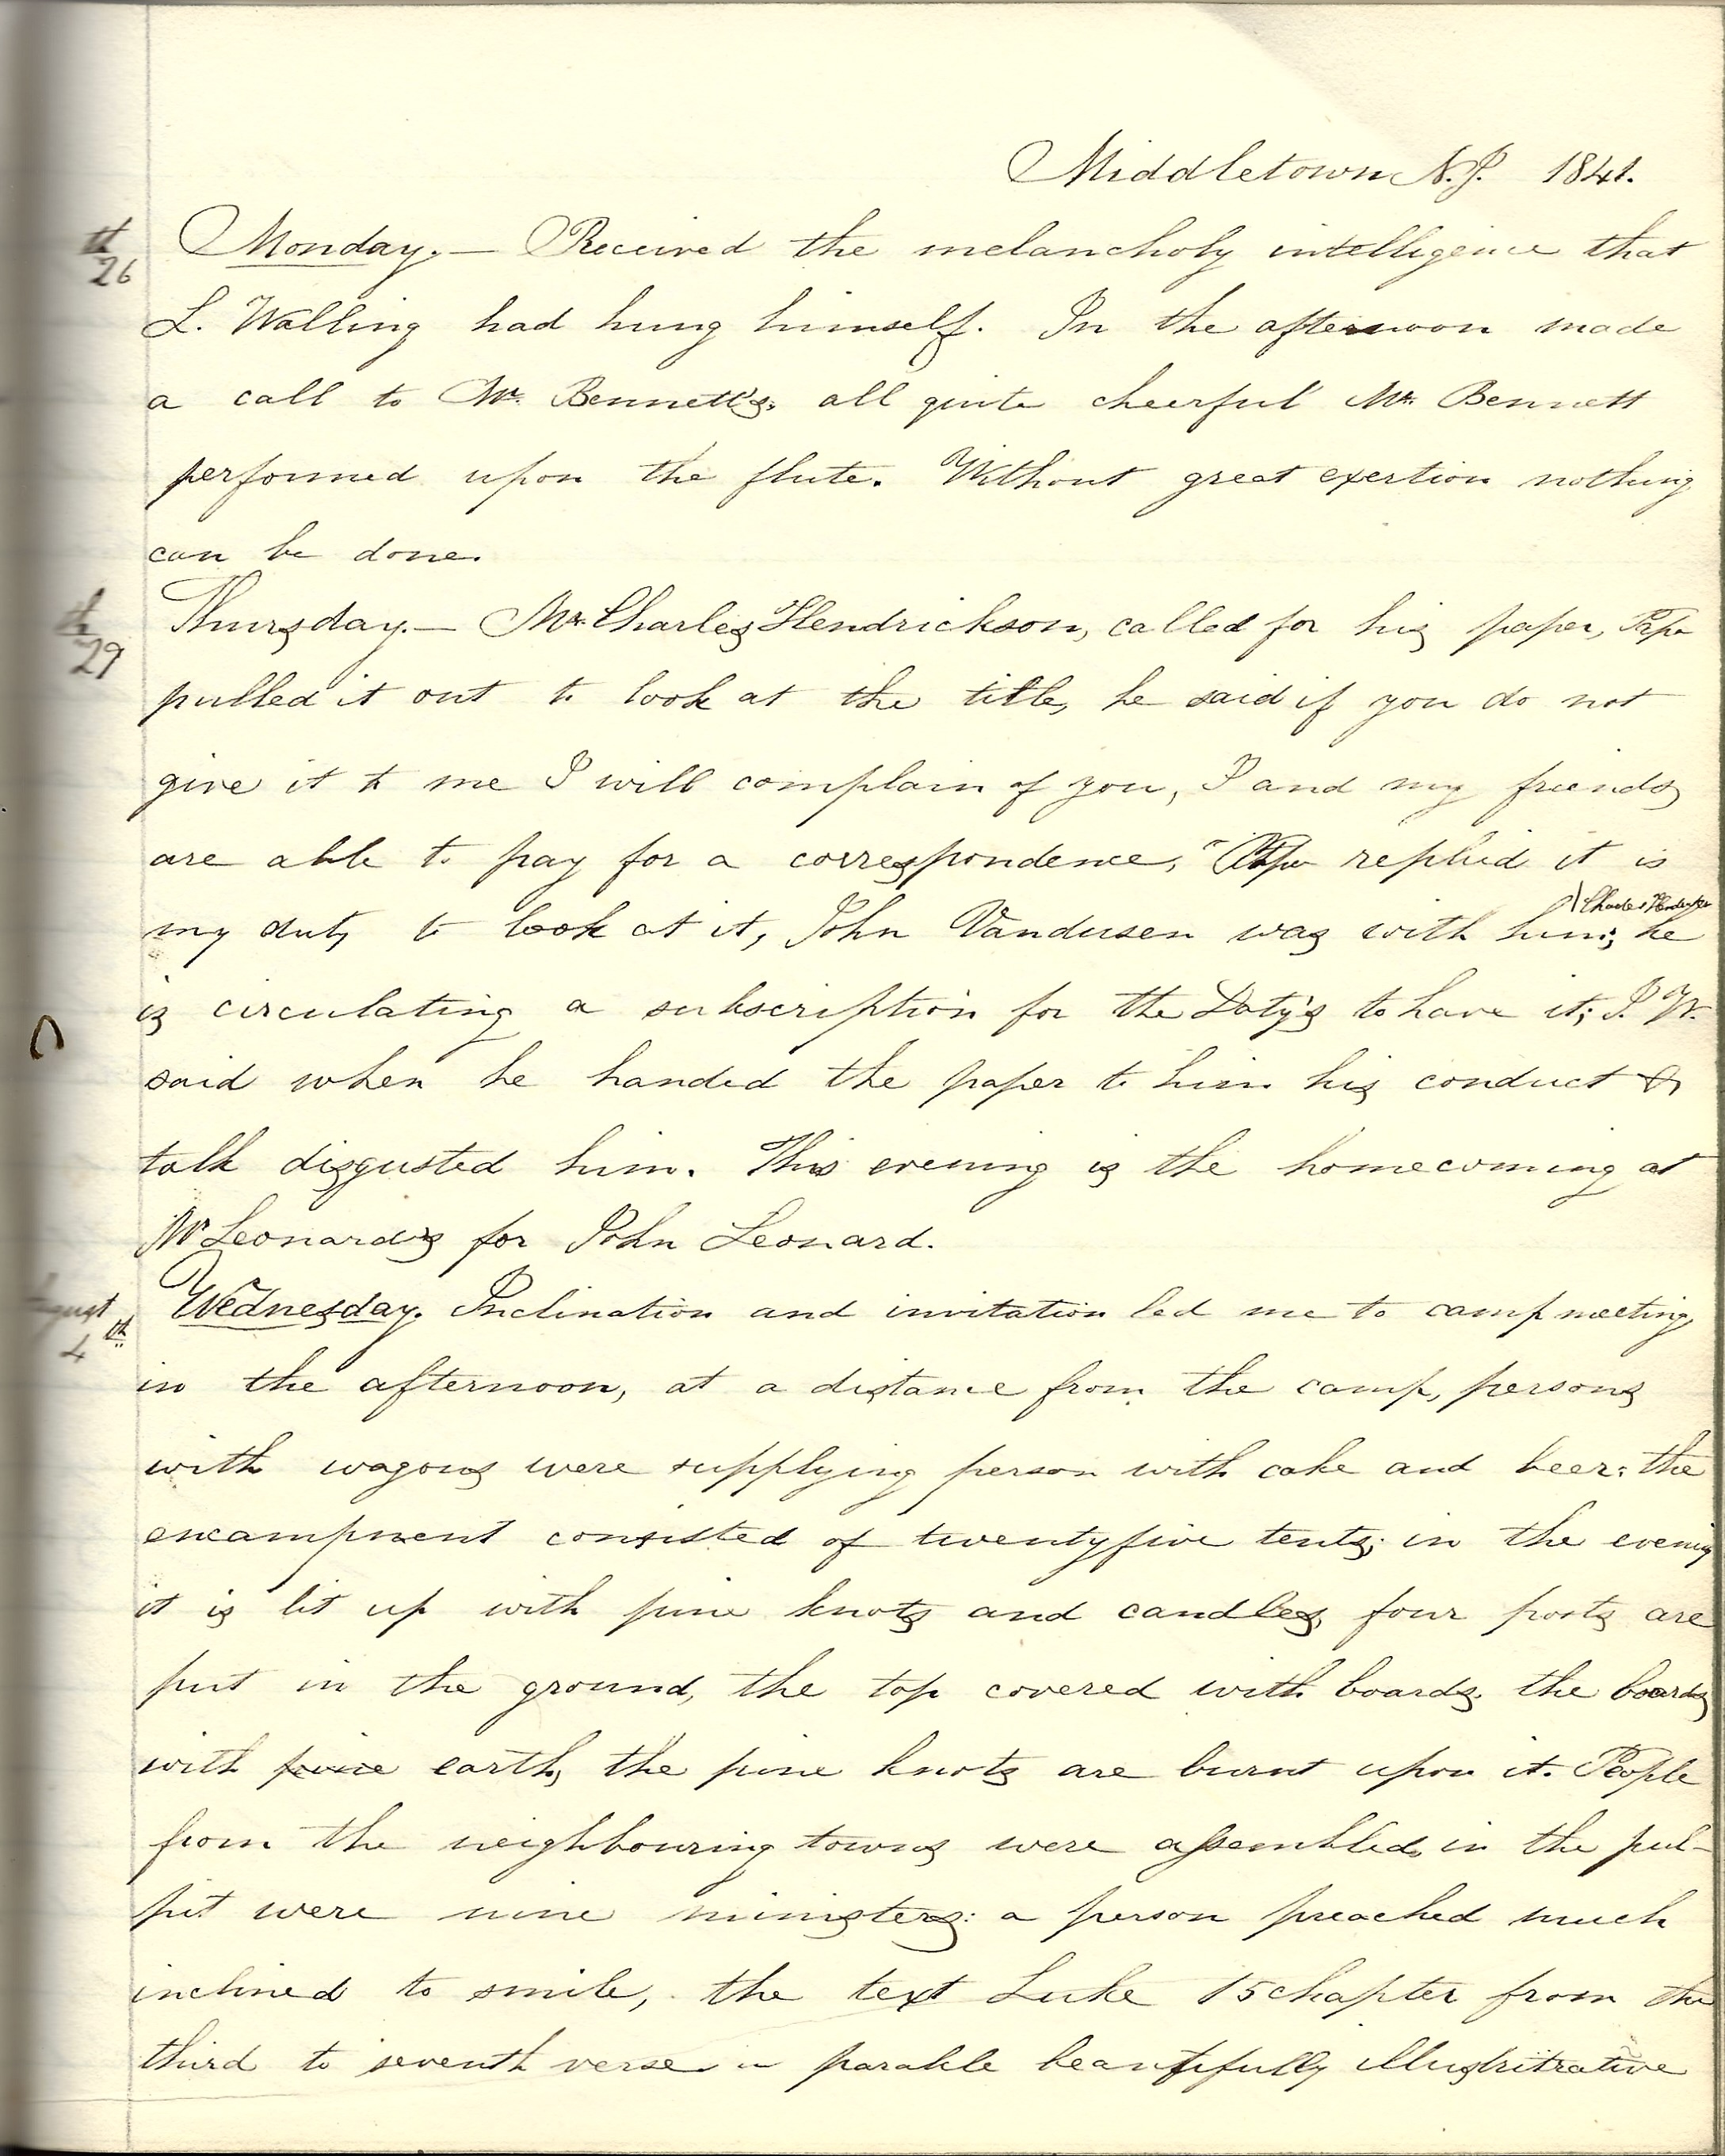 Middletown N.J. 1841.
th
26
Monday.— Received the melancholy intelligence that
L. Walling had hung himself. In the afternoon made
a call to Mr. Bennett's, all quite cheerful Mr. Bennett
performed upon the flute. Without great exertion nothing
can be done.
th
29
Thursday.— Mr. Charles Hendrickson, called for his paper, Papa
pulled it out to look at the title, he said if you do not
give it to me I will complain of you, I and my friends
are able to pay for a correspondence, Papa replied it is
my duty to look at it, John Vandusen was with him; he
is circulating a subscription for the Doty's to have it; J. W.
said when he handed the paper to him his conduct &
talk disgusted him. This evening is the homecoming at
Mr Leonard's for John Leonard.
August
4th
Wednesday. Inclination and invitation led me to camp meeting
in the afternoon, at a distance from the camp, persons
with wagons were supplying person with cake and beer; the
encampment consisted of twentyfive tents; in the evening
it is lit up with pine knots and candles, four posts are
put in the ground, the top covered with boards, the boards
with pine earth, the pine knots are burnt upon it. People
from the neighbouring towns were assembled, in the pul-
pit were nine ministers: a person preached much
inclined to smile, the text Luke 15 chapter from the
third to seventh verse a parable beautifully illustritrative